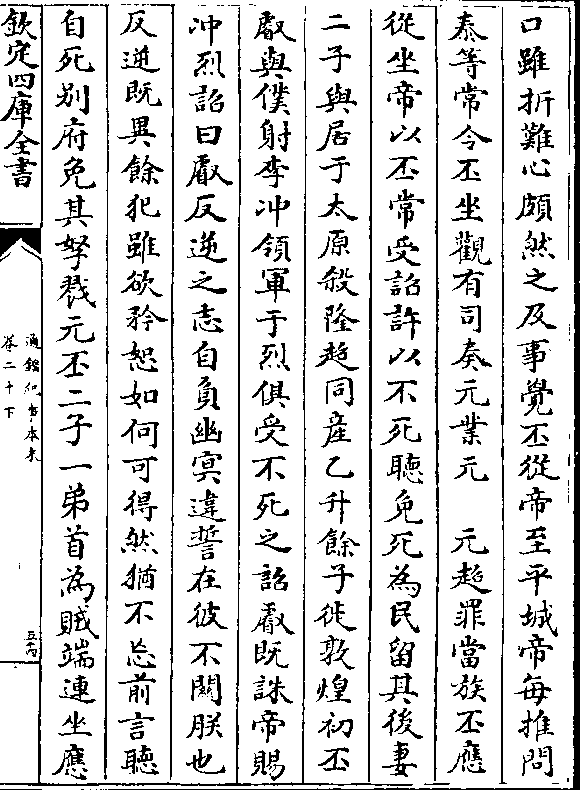 口雖折難心頗然之及事覺丕從帝至平城帝每推問
泰等常令丕坐觀有司奏元業元　元超罪當族丕應
從坐帝以丕常受詔許以不死聽免死為民留其後妻
二子與居于太原殺隆超同産乙升餘子徙敦煌初丕
叡與僕射李冲領軍于烈俱受不死之詔叡既誅帝賜
冲烈詔曰叡反逆之志自負幽冥違誓在彼不關朕也
反逆既異餘犯雖欲矜恕如何可得然猶不忘前言聽
自死别府免其孥戮元丕二子一弟首為賊端連坐應
欽定四庫全書
通鑑紀事本末
卷二十下